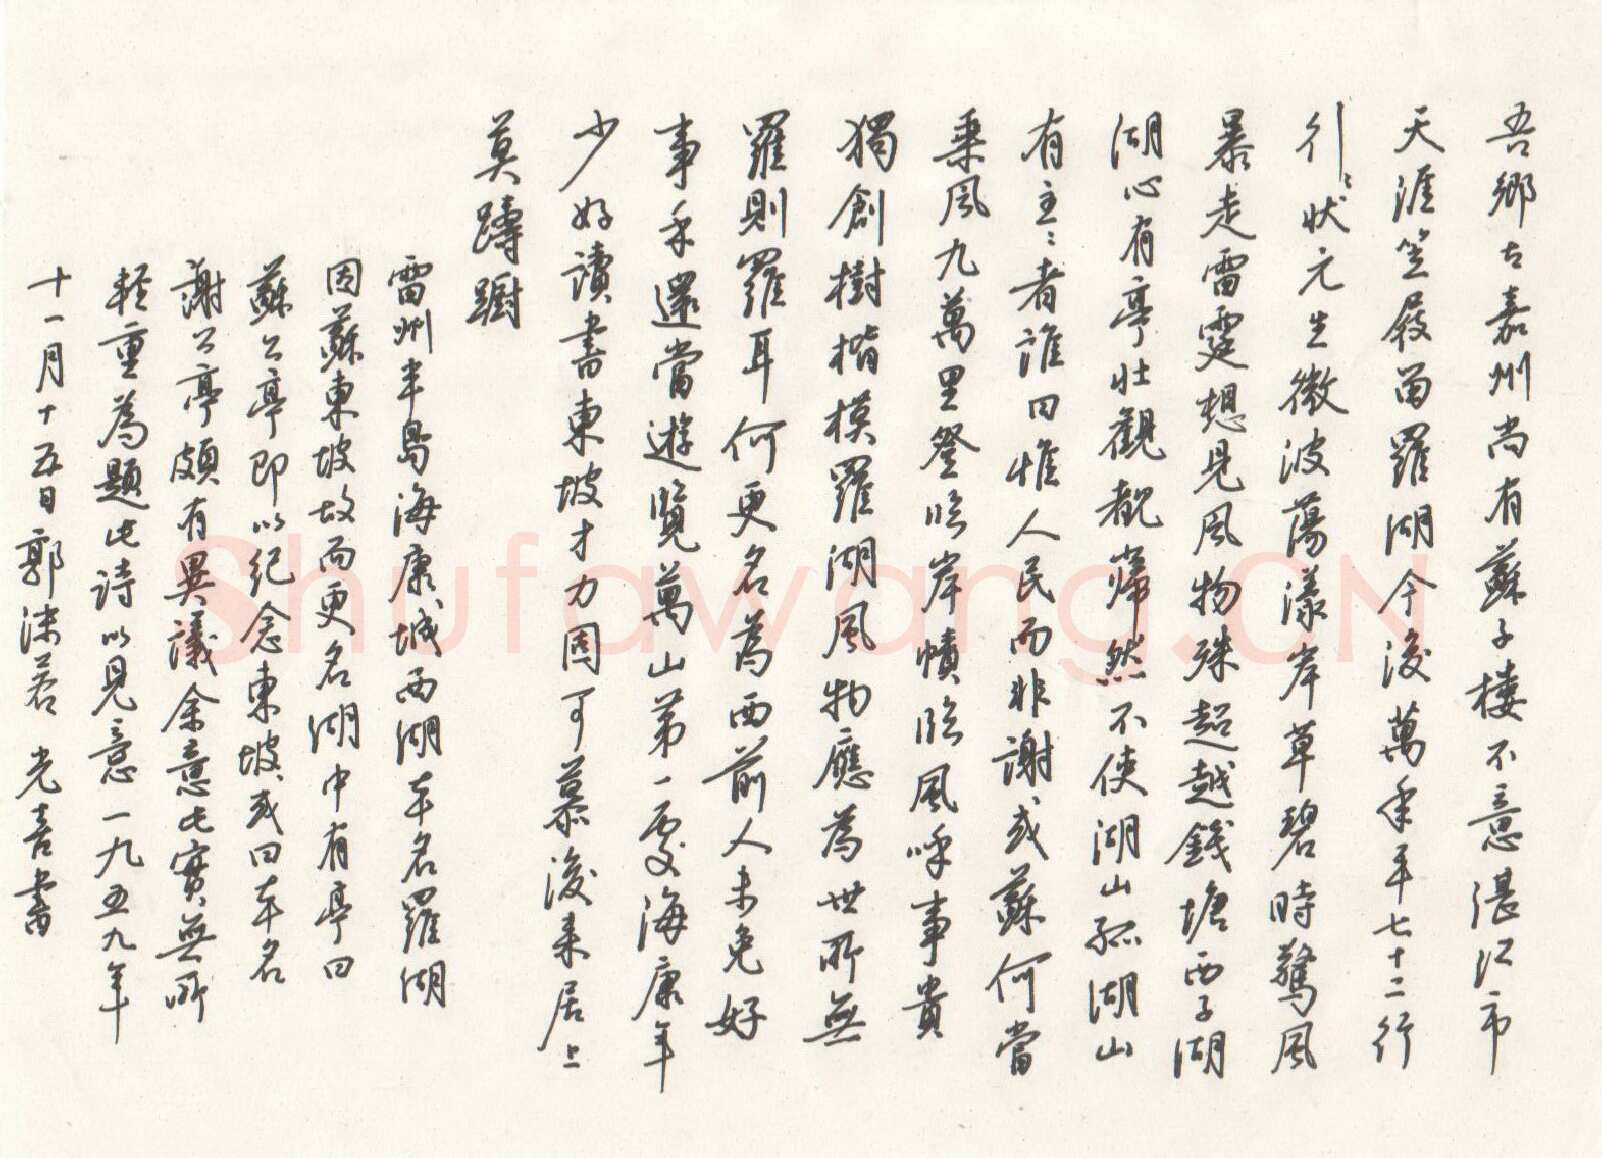 吾鄉古嘉州尚有蘇子樓不意湛江市
天涯笠屐留羅湖今後萬年年七十二行
行〻狀元生微波蕩漾岸草碧時驚風
暴走雷霆想見風物殊超越錢塘西子湖
湖心有亭壯觀巋然不使湖山孤湖山
有主〻者誰曰惟人民而非謝或蘇何當
乘風九萬里登臨岸幘臨風呼事貴
獨創樹楷模羅湖風物應為世所無
羅則羅耳何更名為西前人未免好
事乎還當遊覽萬山第一處海康年
少好讀書東坡才力固可慕後來居上
莫躊躕
雷州半島海康城西湖本名羅湖
因蘇東坡故而更名湖中有亭曰
蘇公亭即以紀念東坡或曰本名
謝公亭頗有異議余意此實無所
輕重為題此詩以見意一九五九年
十一月十五日郭沫若 光喜書
Shufawang.CN